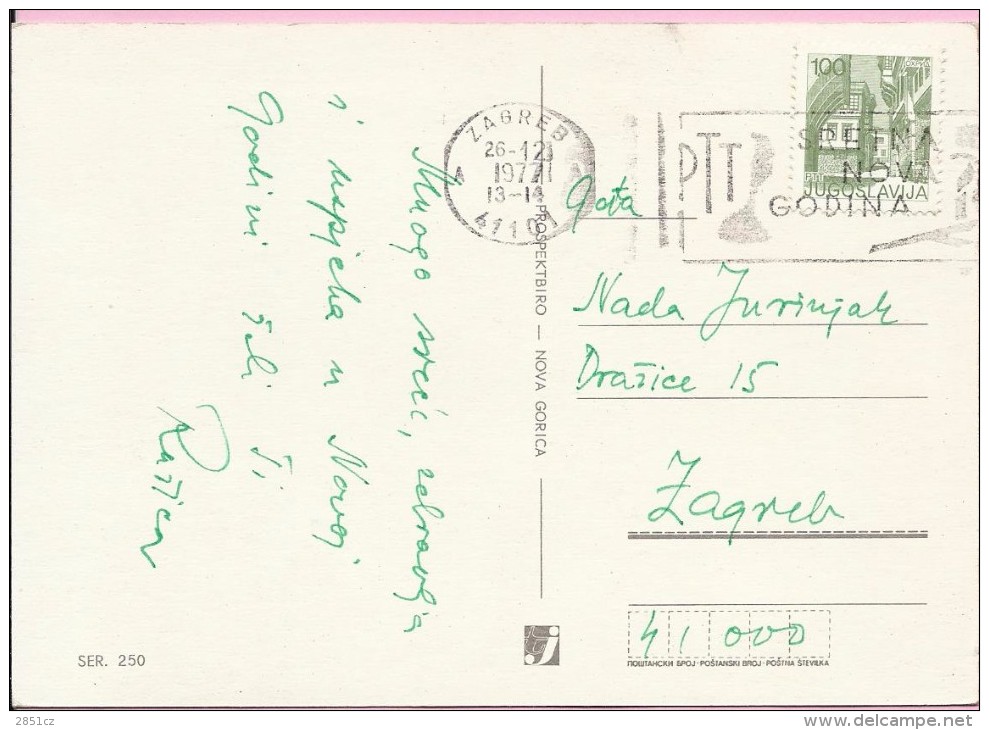 Mnogo sreće, zdravlja
i uspjeha u Novoj
Godini želi Ti
Ružica
ZAGREB
26-12
1977
13-14
41101
PTT
SRETNA
NOVA
GODINA
100
PTT
JUGOSLAVIJA
PROSPEKTBIRO — NOVA GORICA
Gđa
Nada Jurinjak
Dražice 15
Zagreb
41000
ПОШТАНСКИ БРОЈ-POŠTANSKI BROJ-POŠTNA ŠTEVILKA
SER. 250
2851cz
delcampe.net